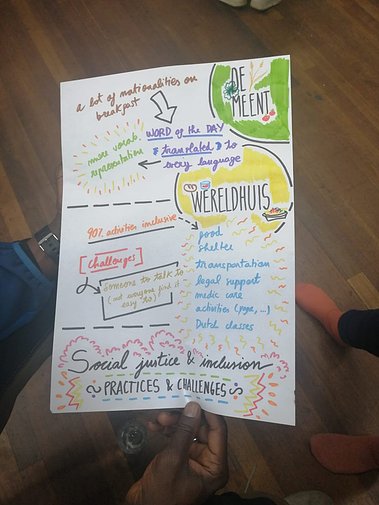 a lot of nationalities on
breakfast
DE
MEENT
WORD of the DAY
translated to
every language
more vocab.
representation
WERELDHUIS
90% activities inclusive
food
shelter
transportation
legal support
medic care
activities (yoga, ...)
Dutch classes
Challenges
Someone to talk to
(not everyone find it
easy to)
Social justice & inclusion
PRACTICES & CHALLENGES